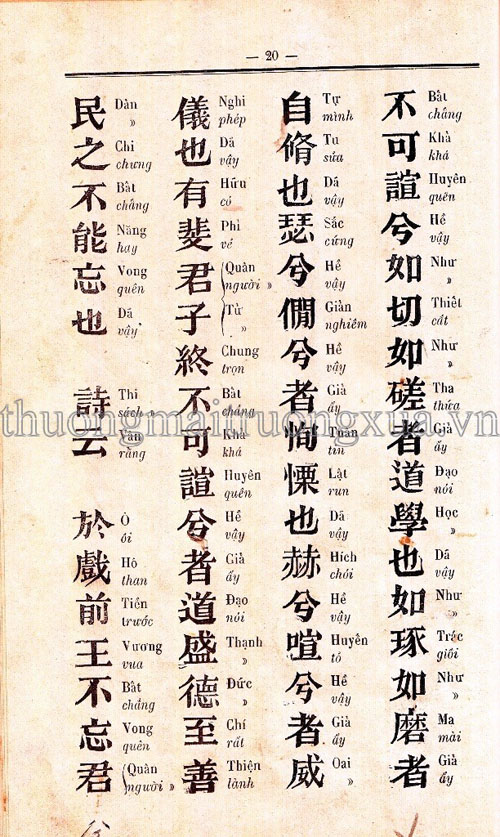 — 20 —
不可諠兮如切如磋者道學也如琢如磨者
Bất
chẳng
Khả
khá
Huyên
quên
Hề
vậy
Như
»
Thiết
cắt
Như
»
Tha
thứa
Giả
ấy
Đạo
nói
Học
»
Dã
vậy
Như
»
Trác
giồi
Như
»
Ma
mài
Giả
ấy
自脩也瑟兮僩兮者恂慄也赫兮喧兮者威
Tự
mình
Tu
sửa
Dã
vậy
Sắc
cứng
Hề
vậy
Giản
nghiêm
Hề
vậy
Giả
ấy
Tuân
tin
Lật
run
Dã
vậy
Hích
chói
Hề
vậy
Huyên
tỏ
Hề
vậy
Giả
ấy
Oai
»
儀也有斐君子終不可諠兮者道盛德至善
Nghi
phép
Dã
vậy
Hữu
có
Phỉ
vẻ
Quân
người »
Tử
»
Chung
trọn
Bất
chẳng
Khả
khá
Huyên
quên
Hề
vậy
Giả
ấy
Đạo
nói
Thạnh
»
Đức
»
Chí
rất
Thiện
lành
民之不能忘也 詩云 於戲前王不忘君
Dân
»
Chi
chưng
Bất
chẳng
Năng
hay
Vong
quên
Dã
vậy
Thi
sách »
Vân
rằng
Ô
ôi
Hô
than
Tiền
trước
Vương
vua
Bất
chẳng
Vong
quên
Quân
người »
thuongmaitruongxua.vn